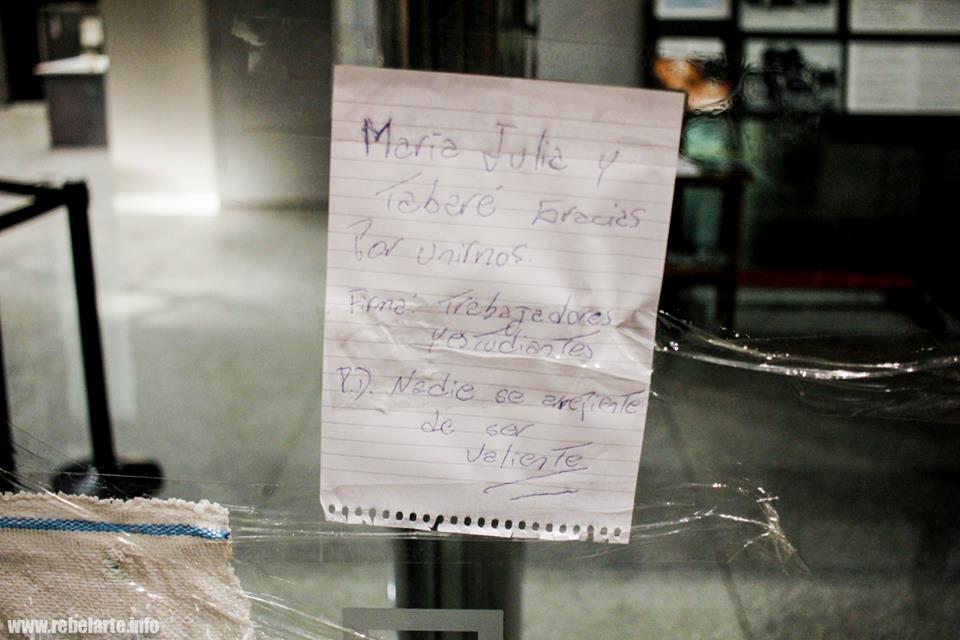 Maria Julia y
Tabaré Gracias
Por unirnos.
Firma: Trabajadores
y estudiantes
P.D. Nadie se arepiente
de ser
valiente
www.rebelarte.info